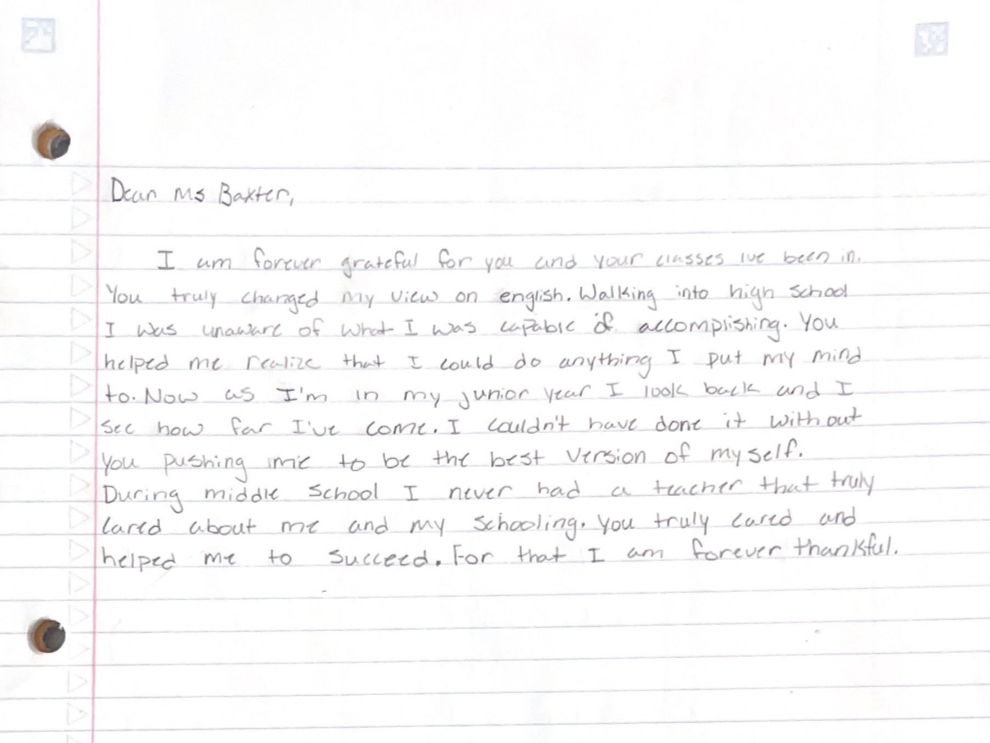 Dear Ms Baxter,
I am forever grateful for you and your classes ive been in.
You truly changed my view on english. Walking into high school
I was unaware of what I was capable of accomplishing. You
helped me realize that I could do anything I put my mind
to. Now as I'm in my junior year I look back and I
see how far I've come. I couldn't have done it without
you pushing me to be the best version of myself.
During middle school I never had a teacher that truly
cared about me and my schooling. You truly cared and
helped me to succeed. For that I am forever thankful.